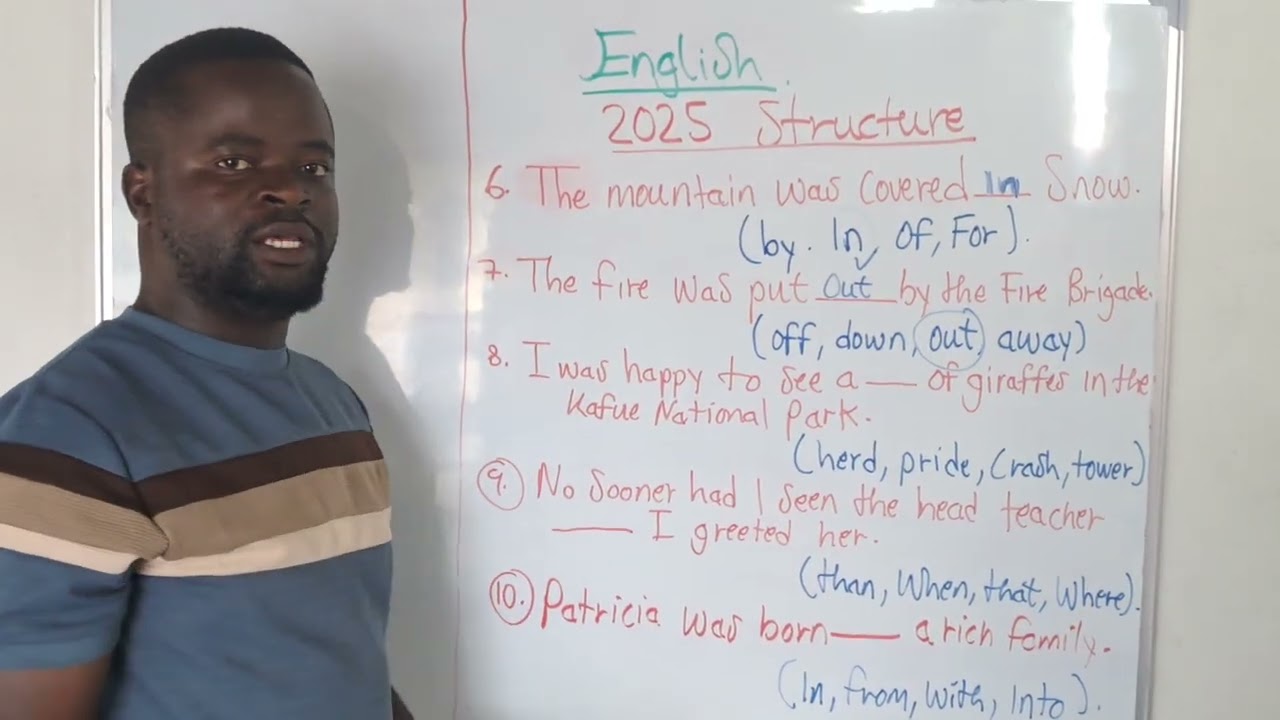 English.
2025 Structure
6. The mountain was covered In Snow.
(by. In, Of, For).
7. The fire was put Out by the Fire Brigade.
(off, down, out, away)
8. I was happy to see a ___ of giraffes in the
Kafue National Park.
(herd, pride, Crash, tower)
9. No Sooner had I seen the head teacher
___ I greeted her.
(than, When, that, Where).
10. Patricia was born ___ a rich family.
(In, from, with, Into).